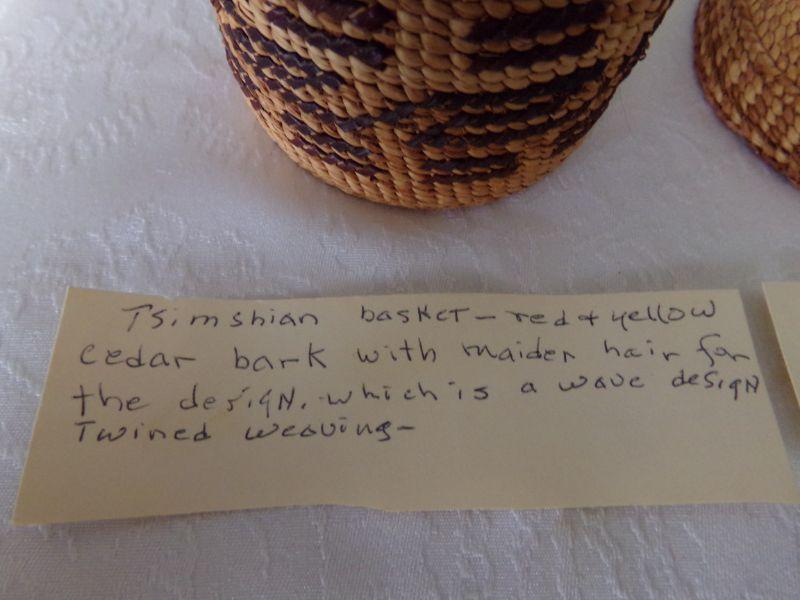 Tsimshian basket - red & yellow
cedar bark with maiden hair for
the design. which is a wave design
Twined weaving -